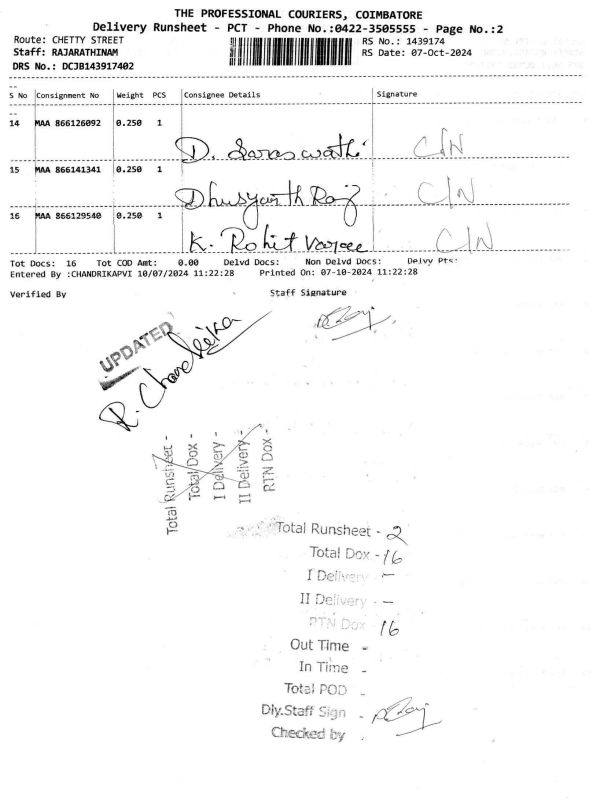 THE PROFESSIONAL COURIERS, COIMBATORE
Delivery Runsheet - PCT - Phone No.:0422-3505555 - Page No.:2
Route: CHETTY STREET RS No.: 1439174
Staff: RAJARATHINAM RS Date: 07-Oct-2024
DRS No.: DCJB143917402
S No Consignment No Weight PCS Consignee Details Signature
14 MAA 866126092 0.250 1
D. Saraswathi C/N
15 MAA 866141341 0.250 1
Dhusyanth Raj C/N
16 MAA 866129540 0.250 1
K. Rohit Varee C/N
Tot Docs: 16 Tot COD Amt: 0.00 Delvd Docs: Non Delvd Docs: Delvy Pts:
Entered By :CHANDRIKAPVI 10/07/2024 11:22:28 Printed On: 07-10-2024 11:22:28
Verified By Staff Signature
UPDATED
R. Chandrika
Total Runsheet -
Total Dox -
I Delivery -
II Delivery -
RTN Dox -
Total Runsheet - 2
Total Dox - 16
I Delivery - –
II Delivery - –
RTN Dox - 16
Out Time -
In Time -
Total POD -
Dly.Staff Sign -
Checked by -